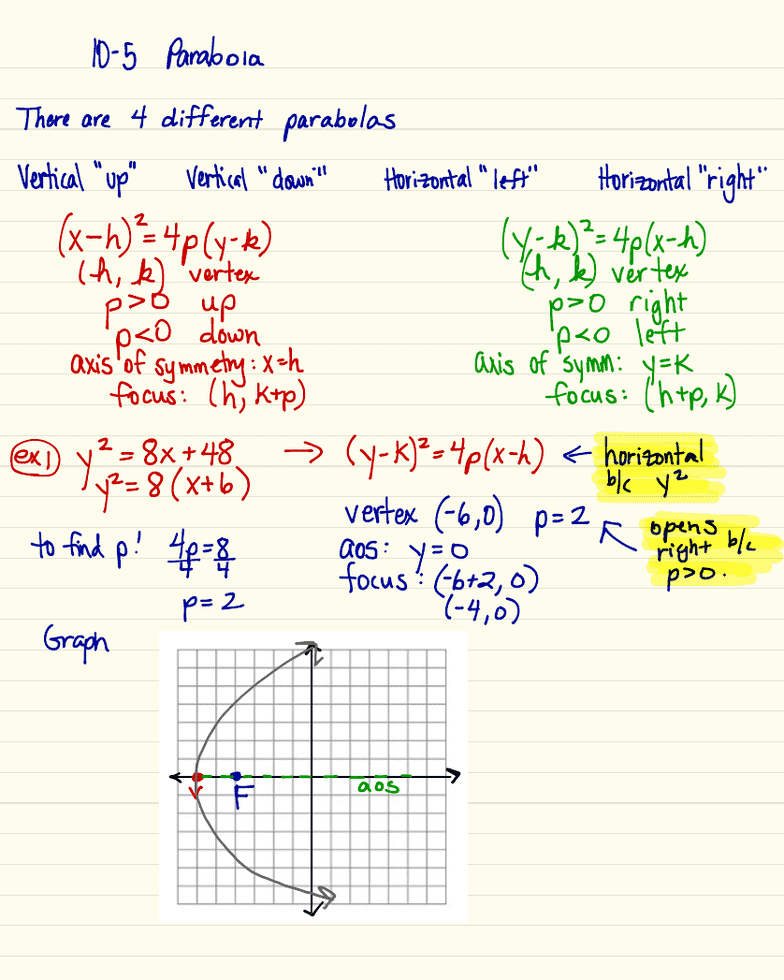 10-5 Parabola
There are 4 different parabolas
Vertical "up" Vertical "down" Horizontal "left" Horizontal "right"
(x-h)²=4p(y-k)
(h, k) vertex
p>0 up
p<0 down
axis of symmetry: x=h
focus: (h, k+p)
(y-k)²=4p(x-h)
(h, k) vertex
p>0 right
p<0 left
axis of symm: y=k
focus: (h+p, k)
ex1 y²=8x+48 → (y-k)²=4p(x-h) ← horizontal
b/c y²
y²=8(x+6)
vertex (-6,0) p=2
opens
right b/c
p>0.
to find p! 4p=8
4 4
p=2
aos: y=0
focus: (-6+2, 0)
(-4,0)
Graph
V
F
aos